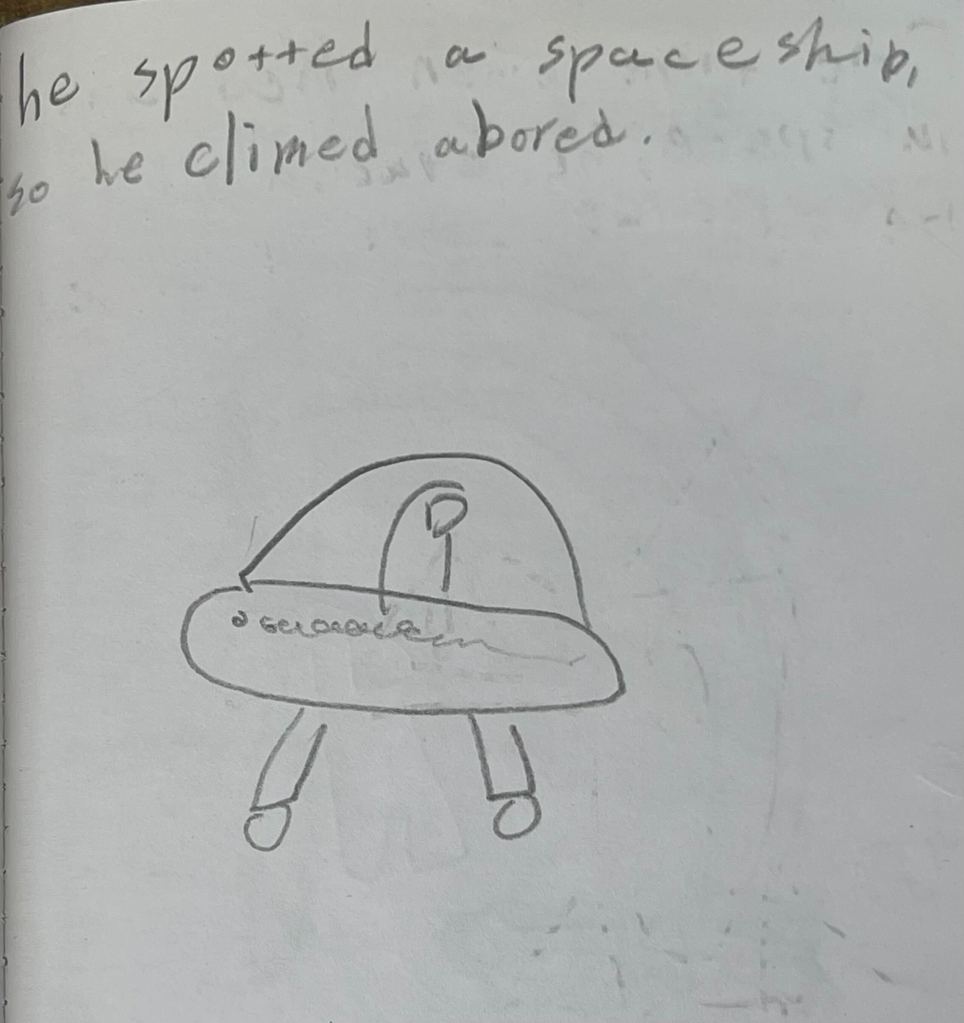 he spotted a spaceship,
so he climed abored.